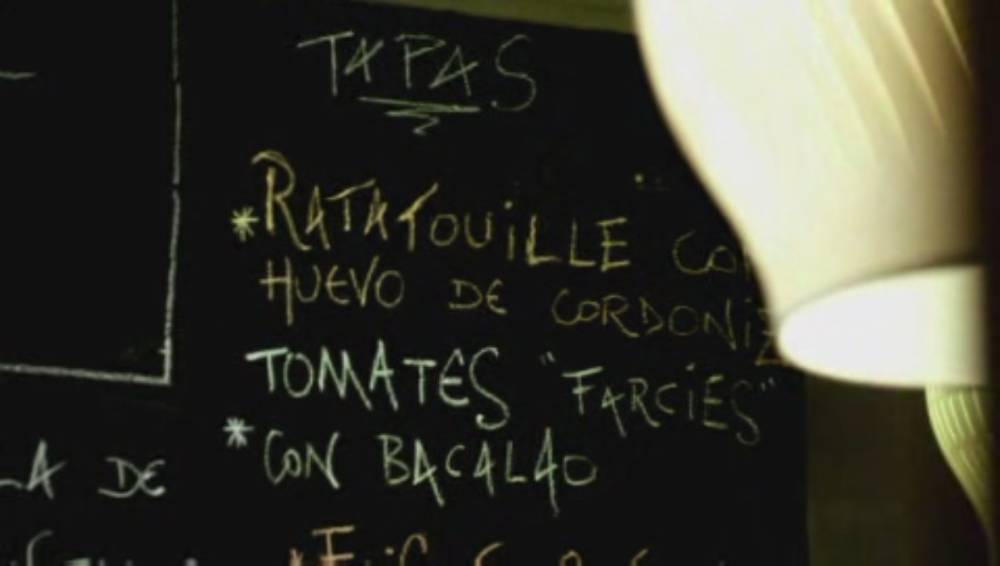 TAPAS
*RATATOUILLE CO
HUEVO DE CORDONIZ
TOMATES "FARCIES"
*CON BACALAO
LA DE